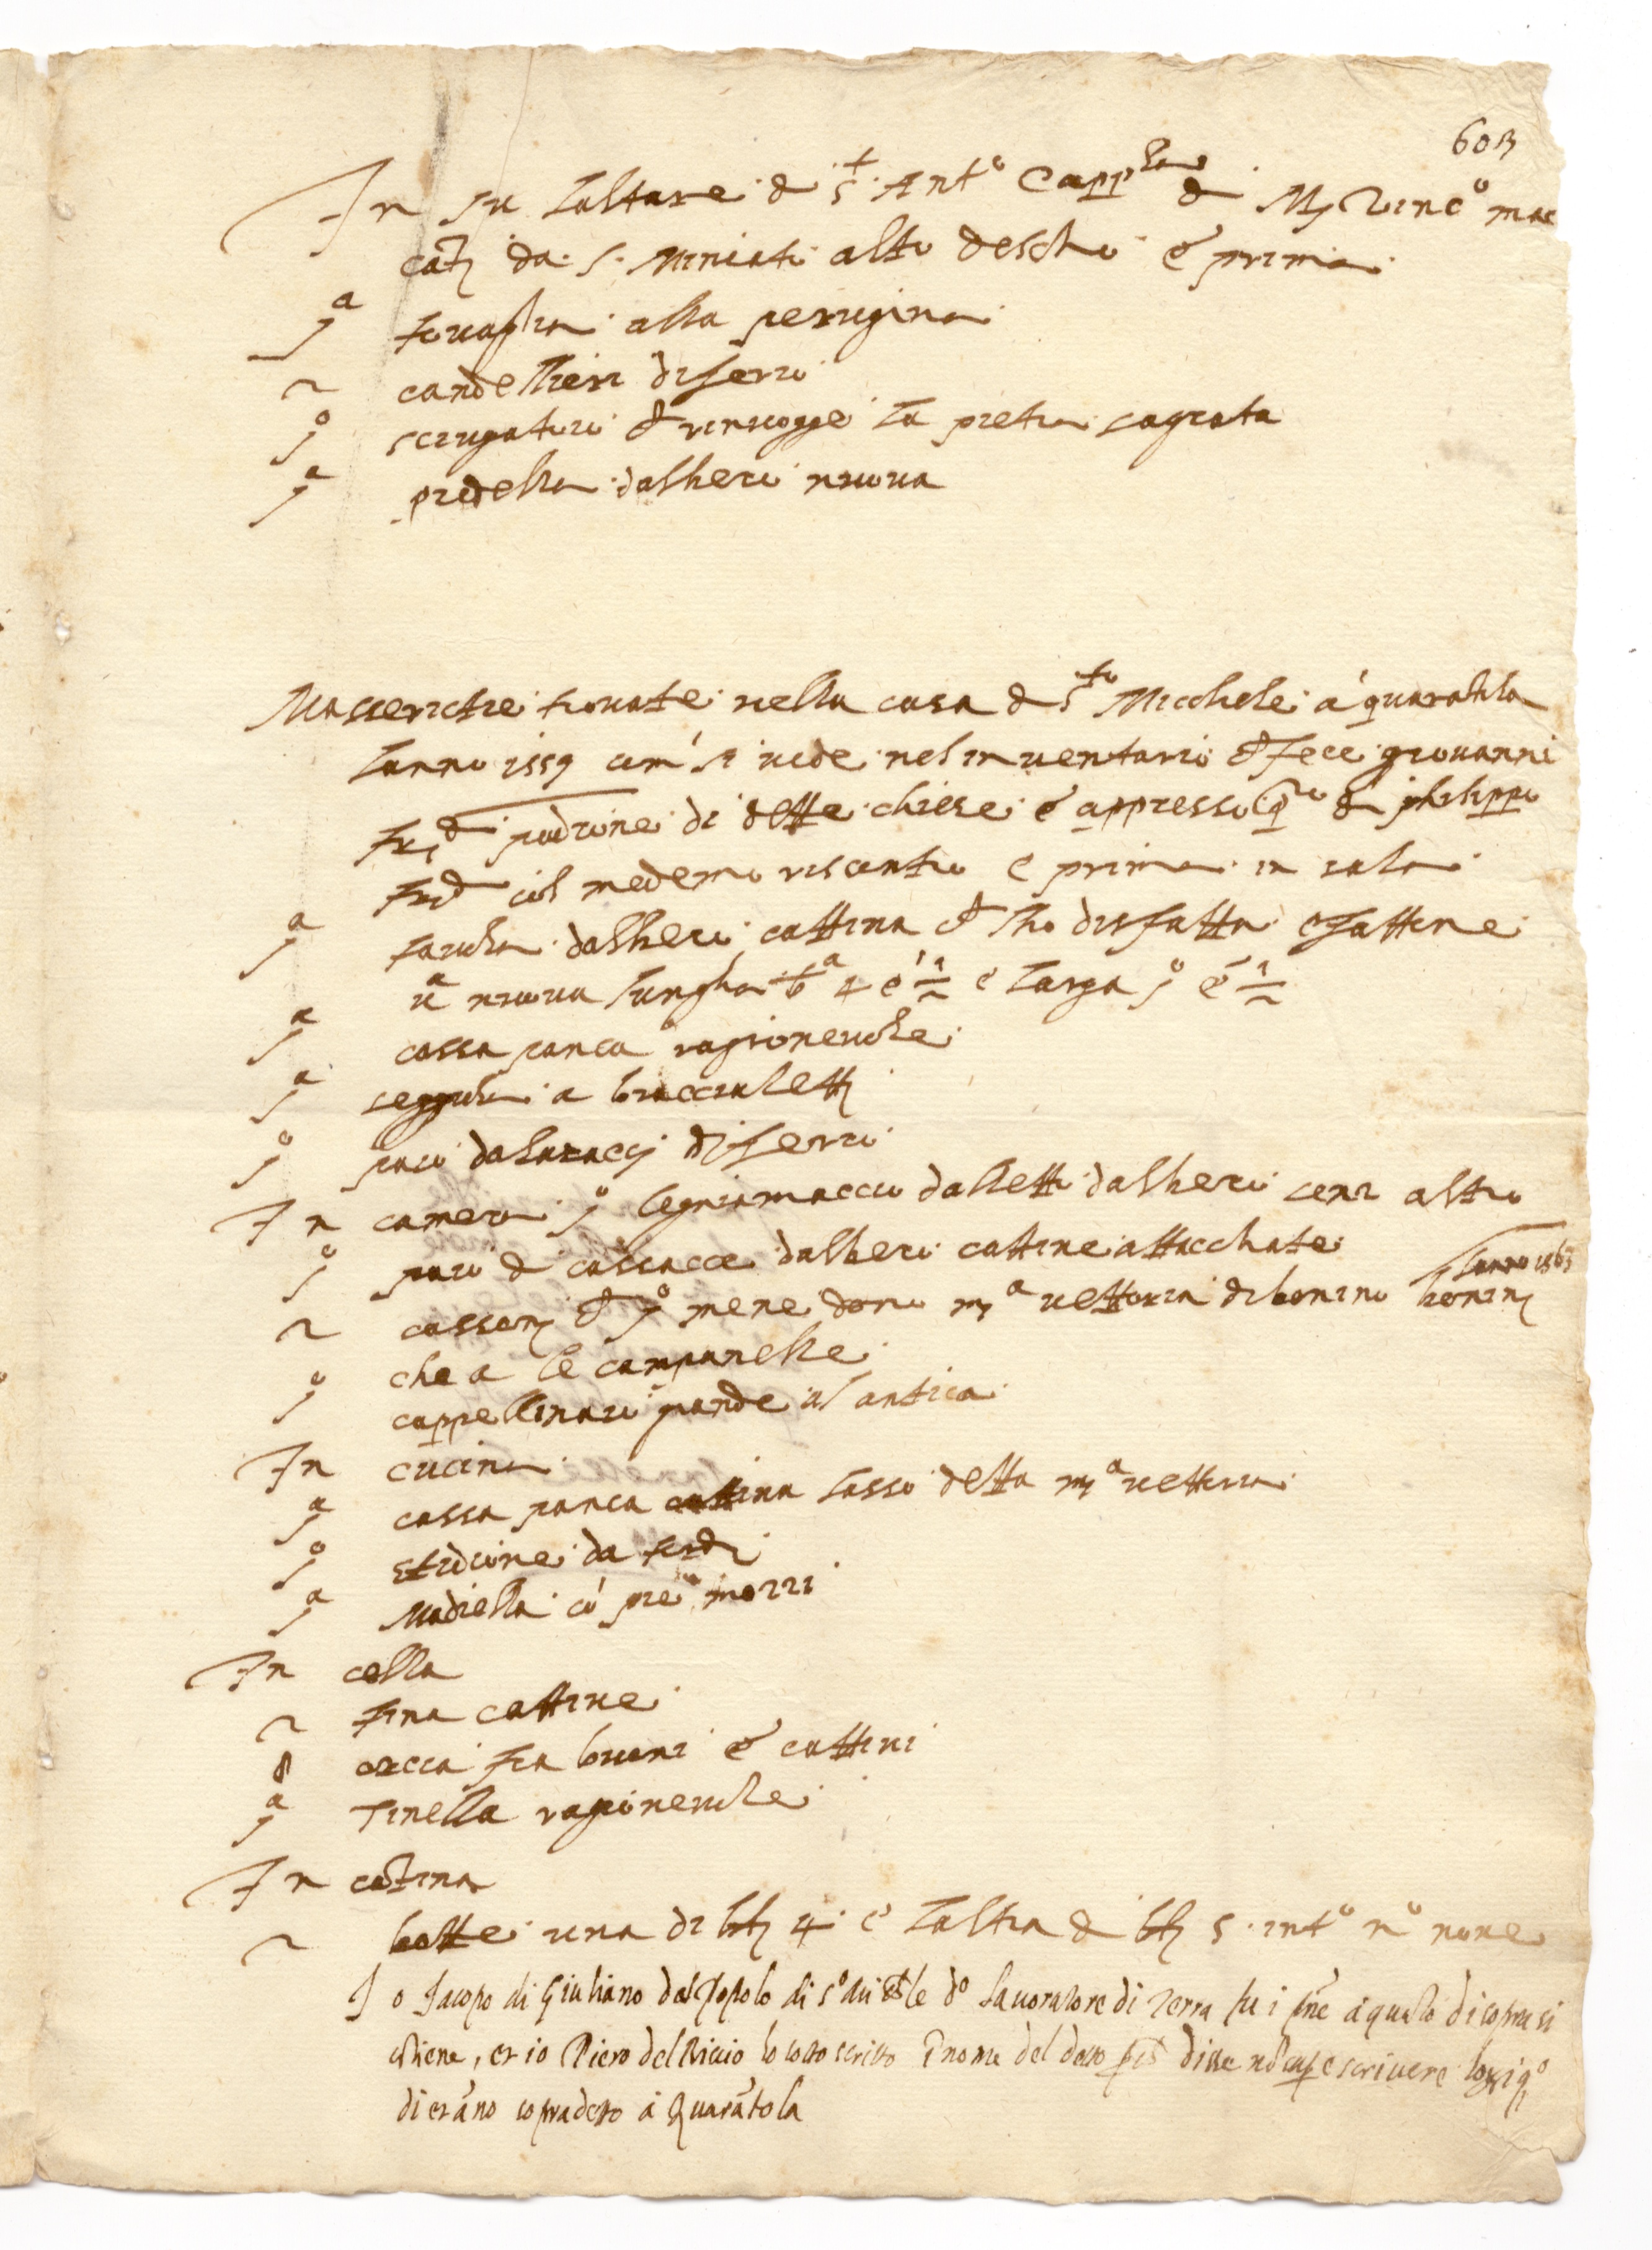 603
In su laltare di sto Anto Capplla di Mr Vinco mac
catj da S. Miniato alto descho e prima
ja tovaglia alla perugina
2 candellieri di ferro
jo sciugatoio che rinvogge la pietra sagrata
ja predella dalbero nuova
Masserictie trovate nella casa di sto Micchele a quarantola
lanno 1559 come si vede nel inventario che fece giovanni
padrone di dette chiese e appresso di philippo
col medemo riscontro e prima in sala
ja tavola dalbero cattina che lho disfatta e fattene
ua nuova lungha ba 4 e 1/2 e larga jo e 1/2
ja cassa panca ragionevole
ja seggiola a braccialetti
jo paio dalaracci di ferro
In camera jo legniamaccio dalletto dalbero senz altro
jo paio di cassacce dalbero cattine attacchate
2 cassonj che jo mene dono ma vettoria di bonino boninj lanno 1563
che a le campanelle
jo cappellinaio grande al antica
In cucina
ja cassa panca cattina lasso detta ma vettoria
jo stidione da tordi
ja Madiella co pie mozzi
In cella
2 tina cattine
8 orcia fra buoni e cattivi
ja Tinella ragionevole
In cantina
2 botte una di btj 4 e laltra di btj 5 into no none
Io Jacopo di Giuliano del Popolo di so do lavoratore di terra fui pnte a quato di sopra si
cotiene, et io Piero del Riccio ho sotto scritto i nome del detto disse no sape scrivere
di et ano sopradetto a Quaratola